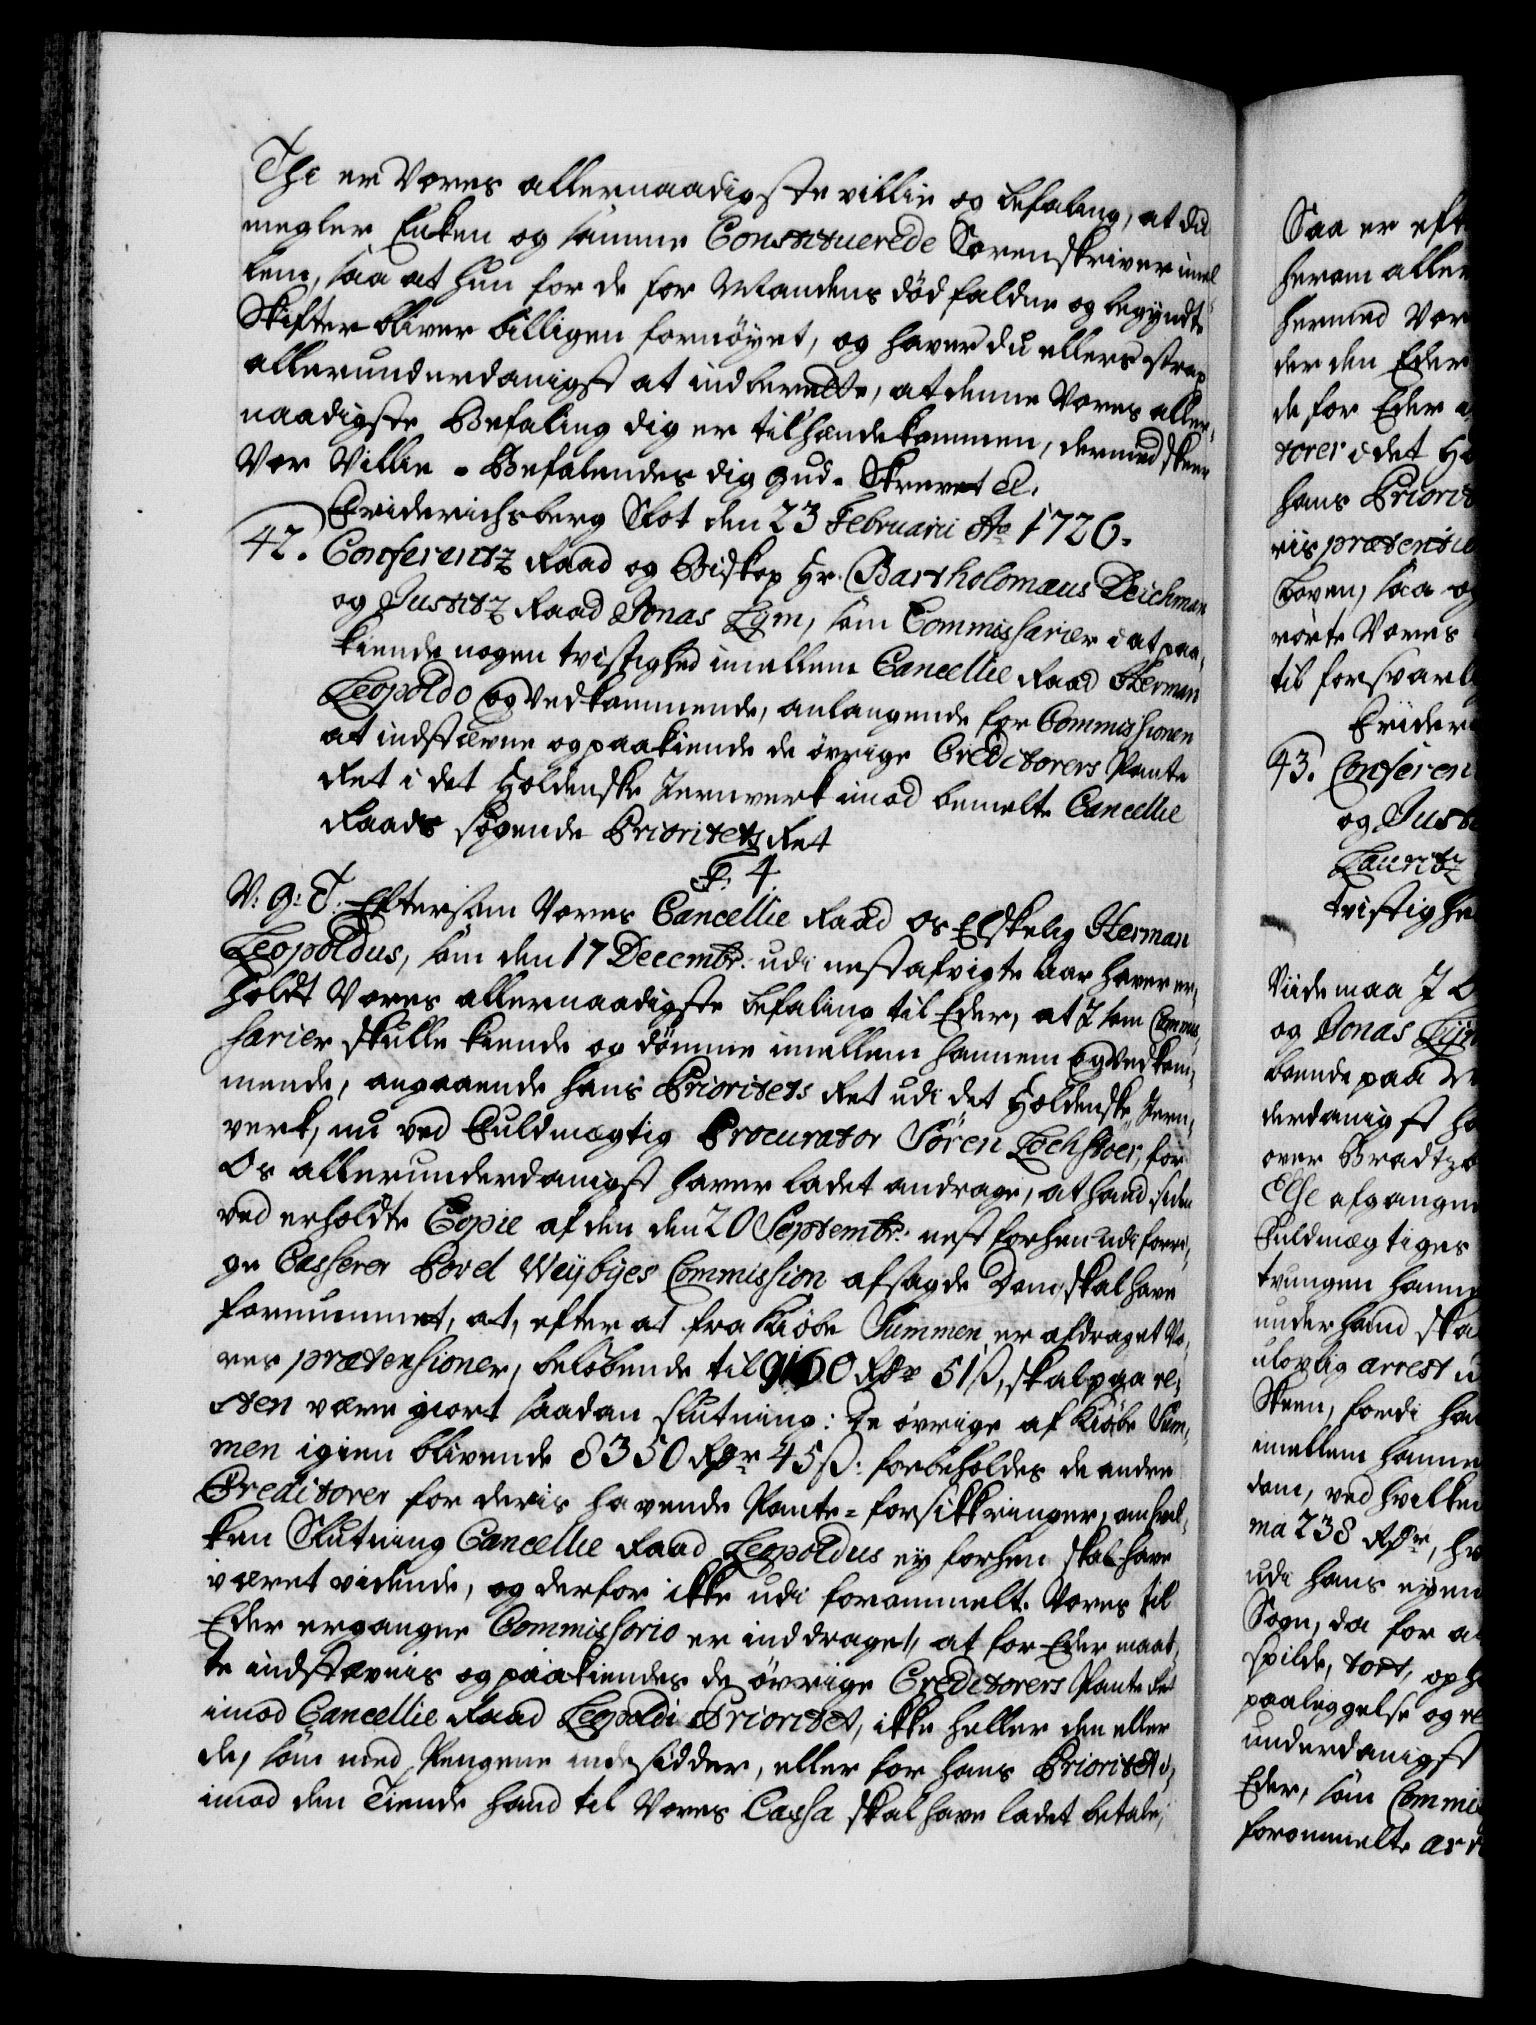 Thi er Vores allernaadigste villie og befaling, at du
megler Enken og samme Constituerede Sorenskriver imel
lem, saa at hun for de for Mandens död faldne og begyndte
Skifter bliver billigen fornöyet, og haver du ellers strax
allerunderdanigst at indberette, at denne Vores aller-
naadigste Befaling dig er tilhændekommen, dermed skeer
Vor Villie. Befalendes dig Gud. Skrevet
Friderichsberg Slot den 23 Februarii Ao 1726.
42. Conferentz Raad og Biskop Hr. Bartholomæus Deichman
og Justitz Raad Jonas Lym, som Commissarier i at paa-
kiende nogen tvistighed imellem Cancellie Raad Herman
Leopoldo og Vedkommende, anlangende for Commissionen
at indstævne og paakiende de övrige Creditorers Pante
Ret i det Holdenske Jernverk imod bemelte Cancellie
Raads sögende Prioritets Ret
F. 4.
V: G: T: Eftersom Vores Cancellie Raad Os Elskelig Herman
Leopoldus, som den 17 Decembr: udi nestafvigte aar haver er-
holdt Vores allernaadigste befaling til Eder, at I som Commis-
sarier skulle kiende og dömme imellem hannem og Vedkom-
mende, angaaende hans Prioritets Ret udi det Holdenske Jern-
verk, nu ved Fuldmegtig Procurator Sören Lochstoer, for
Os allerunderdanigst haver ladet andrage, at hand siden
ved erholdte Copie af den den 20 Septembr: nest forhen udi forri-
ge Casserer Povel Weybyes Commission afsagde Dom, skal have
fornummet, at, efter at fra Kiöbe Summen er afdraget Vo-
res prætensioner, belöbende til 9160 Rdr 51 ß, skal paa re-
sten være giort saadan slutning: De övrige af Kiöbe Sum-
men igien blivende 8350 Rdr 45 ß: forbeholdes de andre
Creditorer for deris havende Pante-forsikkringer, om hvil-
ken Slutning Cancellie Raad Leopoldus ey forhen skal have
været vidende, og derfor ikke udi forommelte Vores til
Eder ergangne Commissorio er inddraget, at for Eder maat-
te indstævnis og paakiendes de övrige Creditorers Pante Ret
imod Cancellie Raad Leopoldi Prioritet, ikke heller den eller
de, som med Pengene indesidder, eller for hans Prioritet i-
imod den Tiende hand til Vores Cassa skal have ladet betale,
Saa er eft
herom aller
hermed Vor
der den Eder
de for Eder
torer i det Ho
hans Priorit
ris prætentio
Loven, saa og
rörte Vores
til forsvarl
Frideri
43. Conferen
og Just
Lauritz
tvistighe
Viide maa I
og Jonas Lym
boende paa
derdanigst ha
over Bradtzb
Else afgangne
Fuldmægtiges
tvungen hannem
underhaand ska
ulovlig arrest u
Skeen, fordi ha
imellem hanne
dom, ved hvilken
ma 238 Rdr, hv
udi hans eyen
Sogn, da for a
spilde, tort, og h
paaleggelse og re
underdanigst
Eder, som Commis
forommelte arre